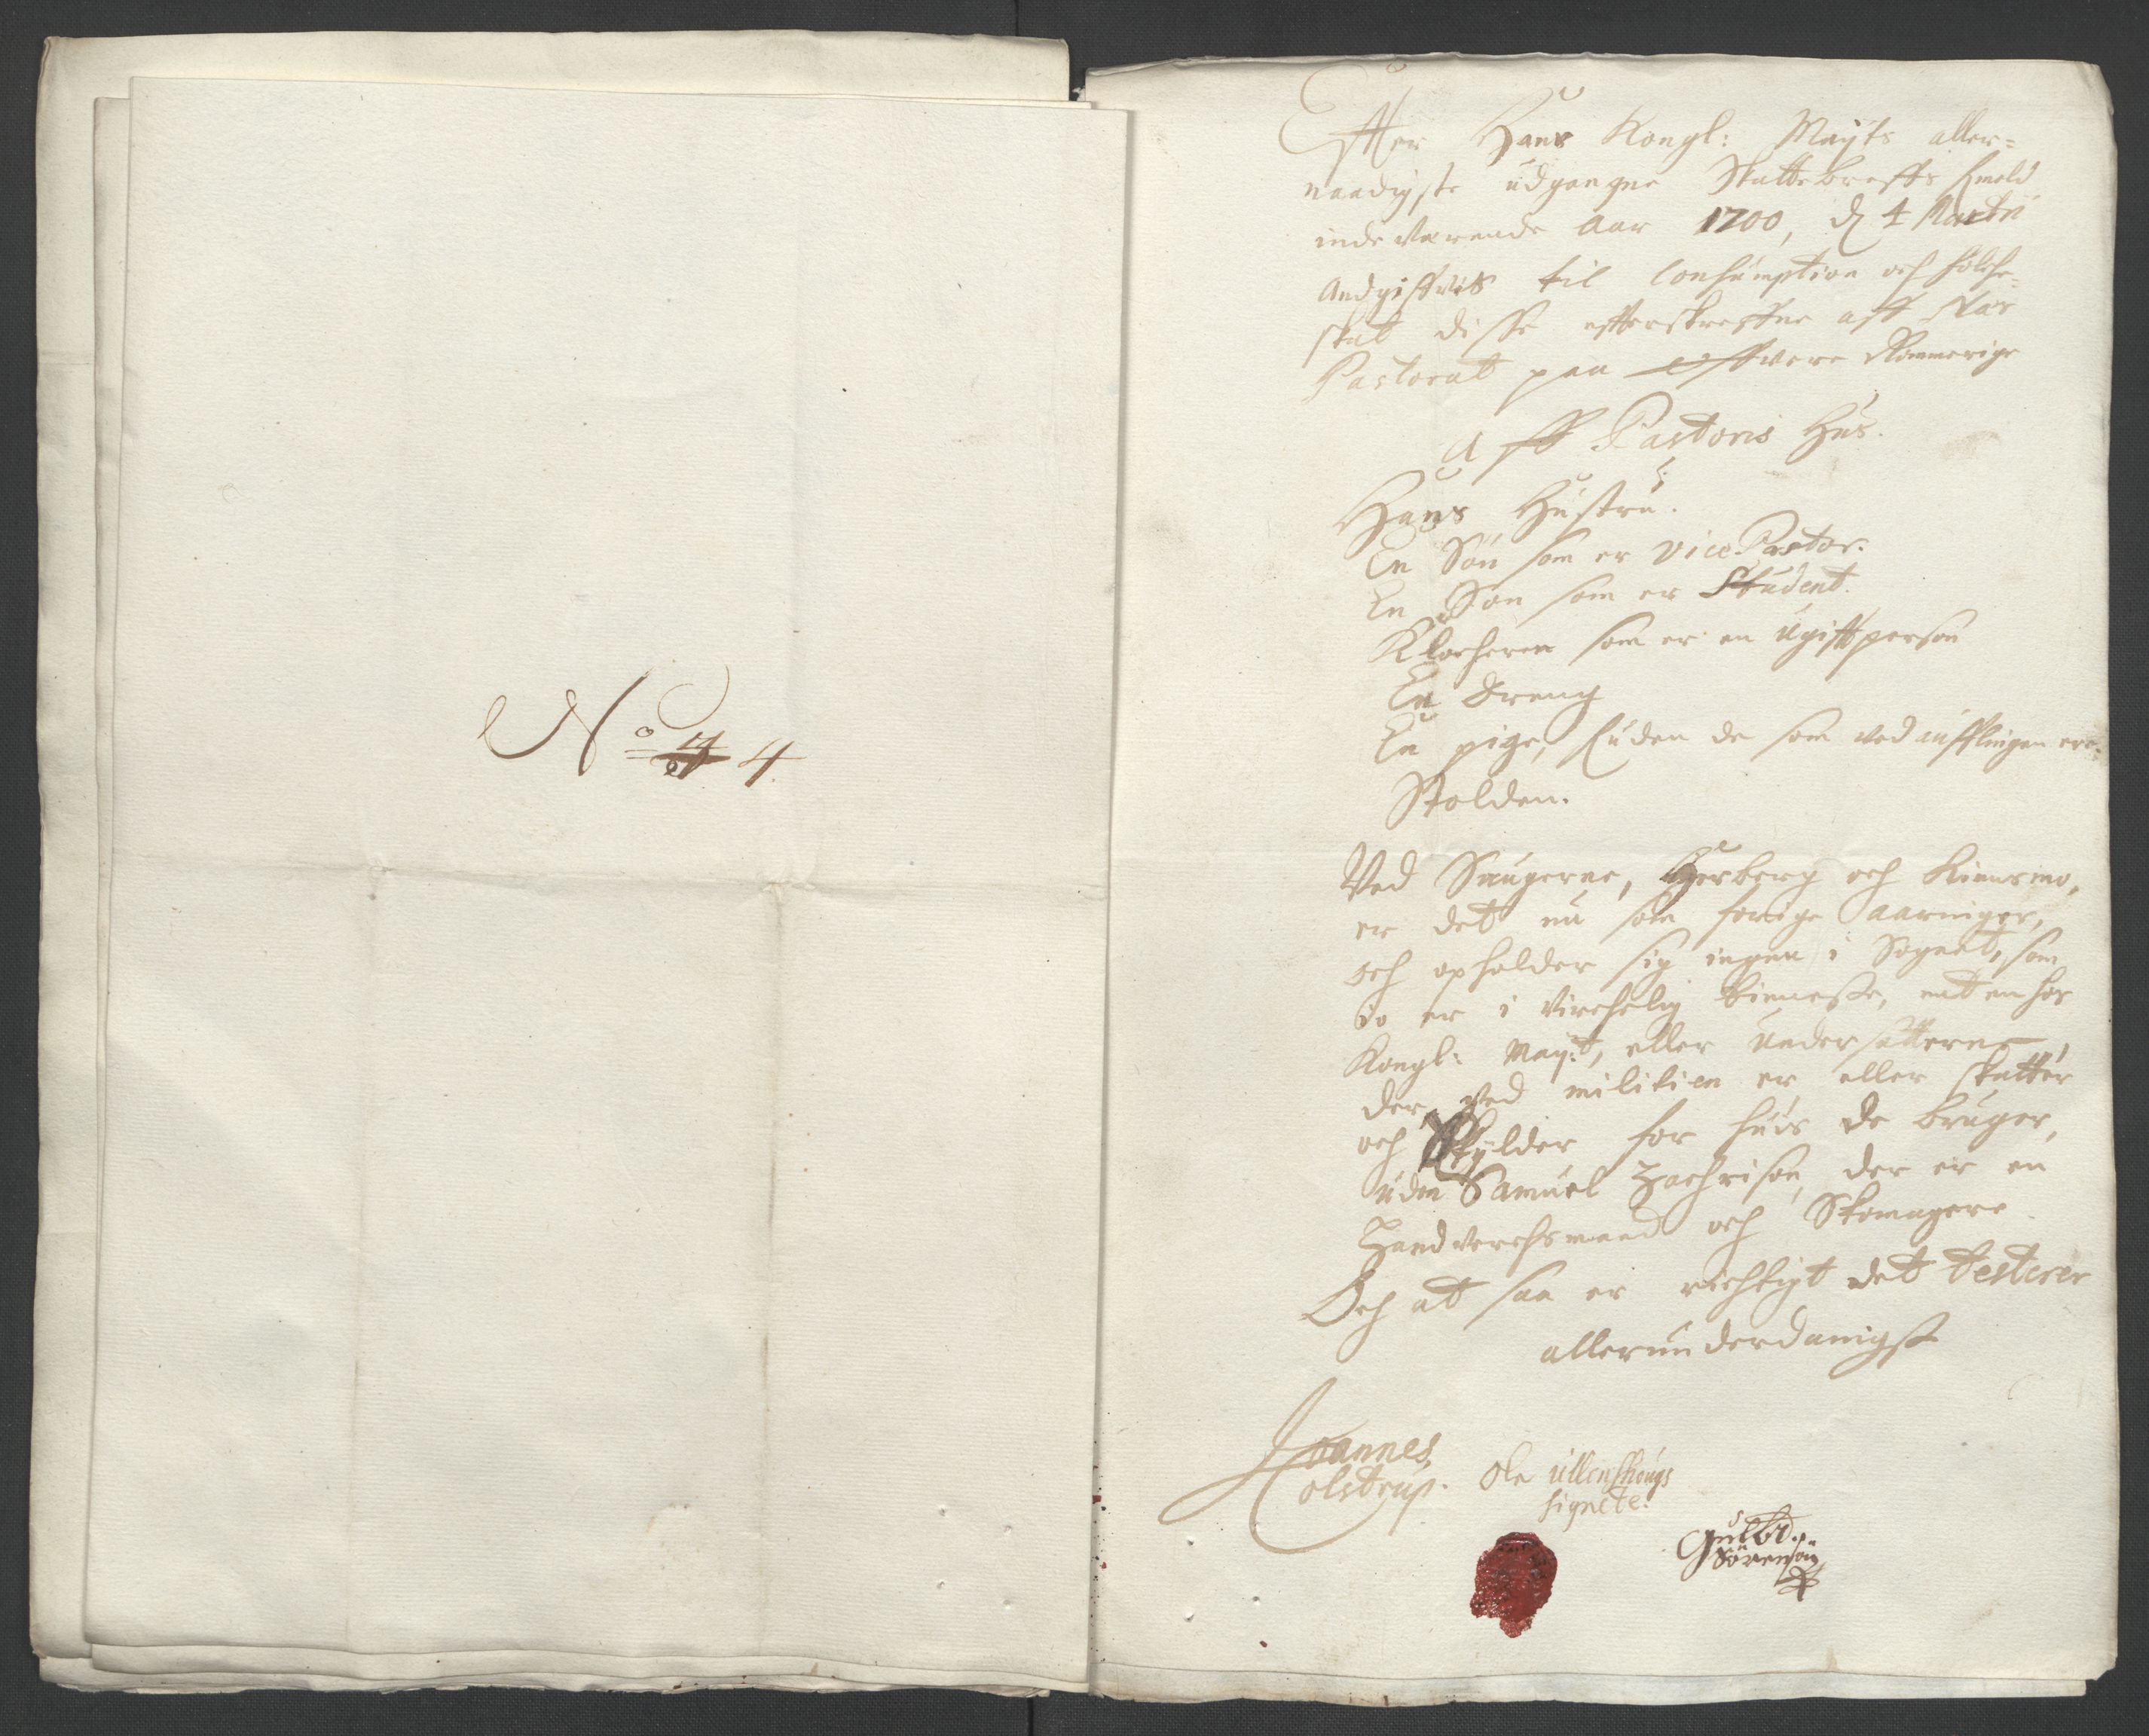 No 4
Effter Hans Kongl: Mayts aller=
naadigste udgangne Skattebreffs
indeverende Aar 1700, d 4 Martii
Andgiffves til Consumption och folche=
skat disse effterskreffne aff Næs
Pastorat paa Øffvere Rommerige
Aff Pastoris Hus.
Hans Hustru.
En Søn som er vice Pastor.
En Søn som er Student.
Klocheren som er en ugifft person
En Dreng
En pige, Enden de som ved aufflingen ere:
Stolden.
Ved Saugerne, Herberg och Kiensmo,
er det nu som forige Aaringer,
och opholder sig ingen i Sognet, som
io er i virchelig tieneste, enten hos
Kongl: Mayt, eller undersatterne,
der ved militien er eller skatter
och Skylder for huis de bruger,
uden Samuel Zachrisøn, der er en
Handverchsmand och Skomagere
Och at saa er richtigt det testerer
allerunderdanigst
Joannes
Colstrup.
Ole Ullenshougs
signete.
Gulbr.
Sørensøn